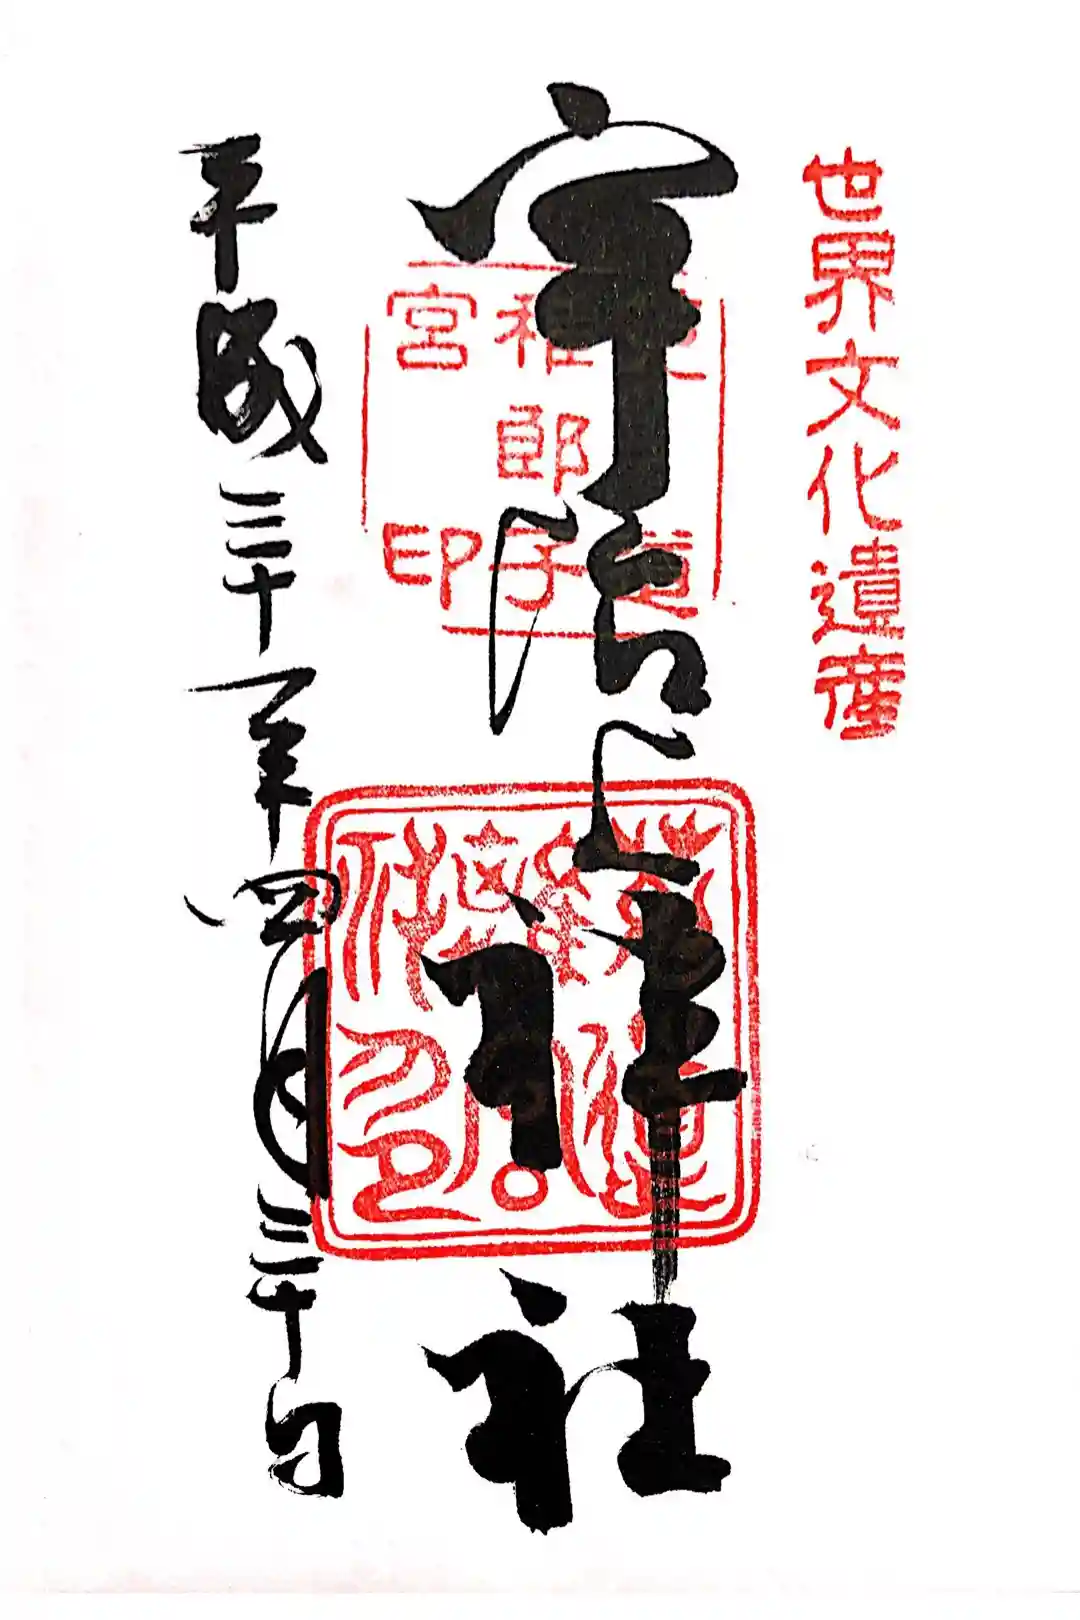 世界文化遺産
宇治上神社
道
稚郎子
宮印
平成三十一年四月三十日